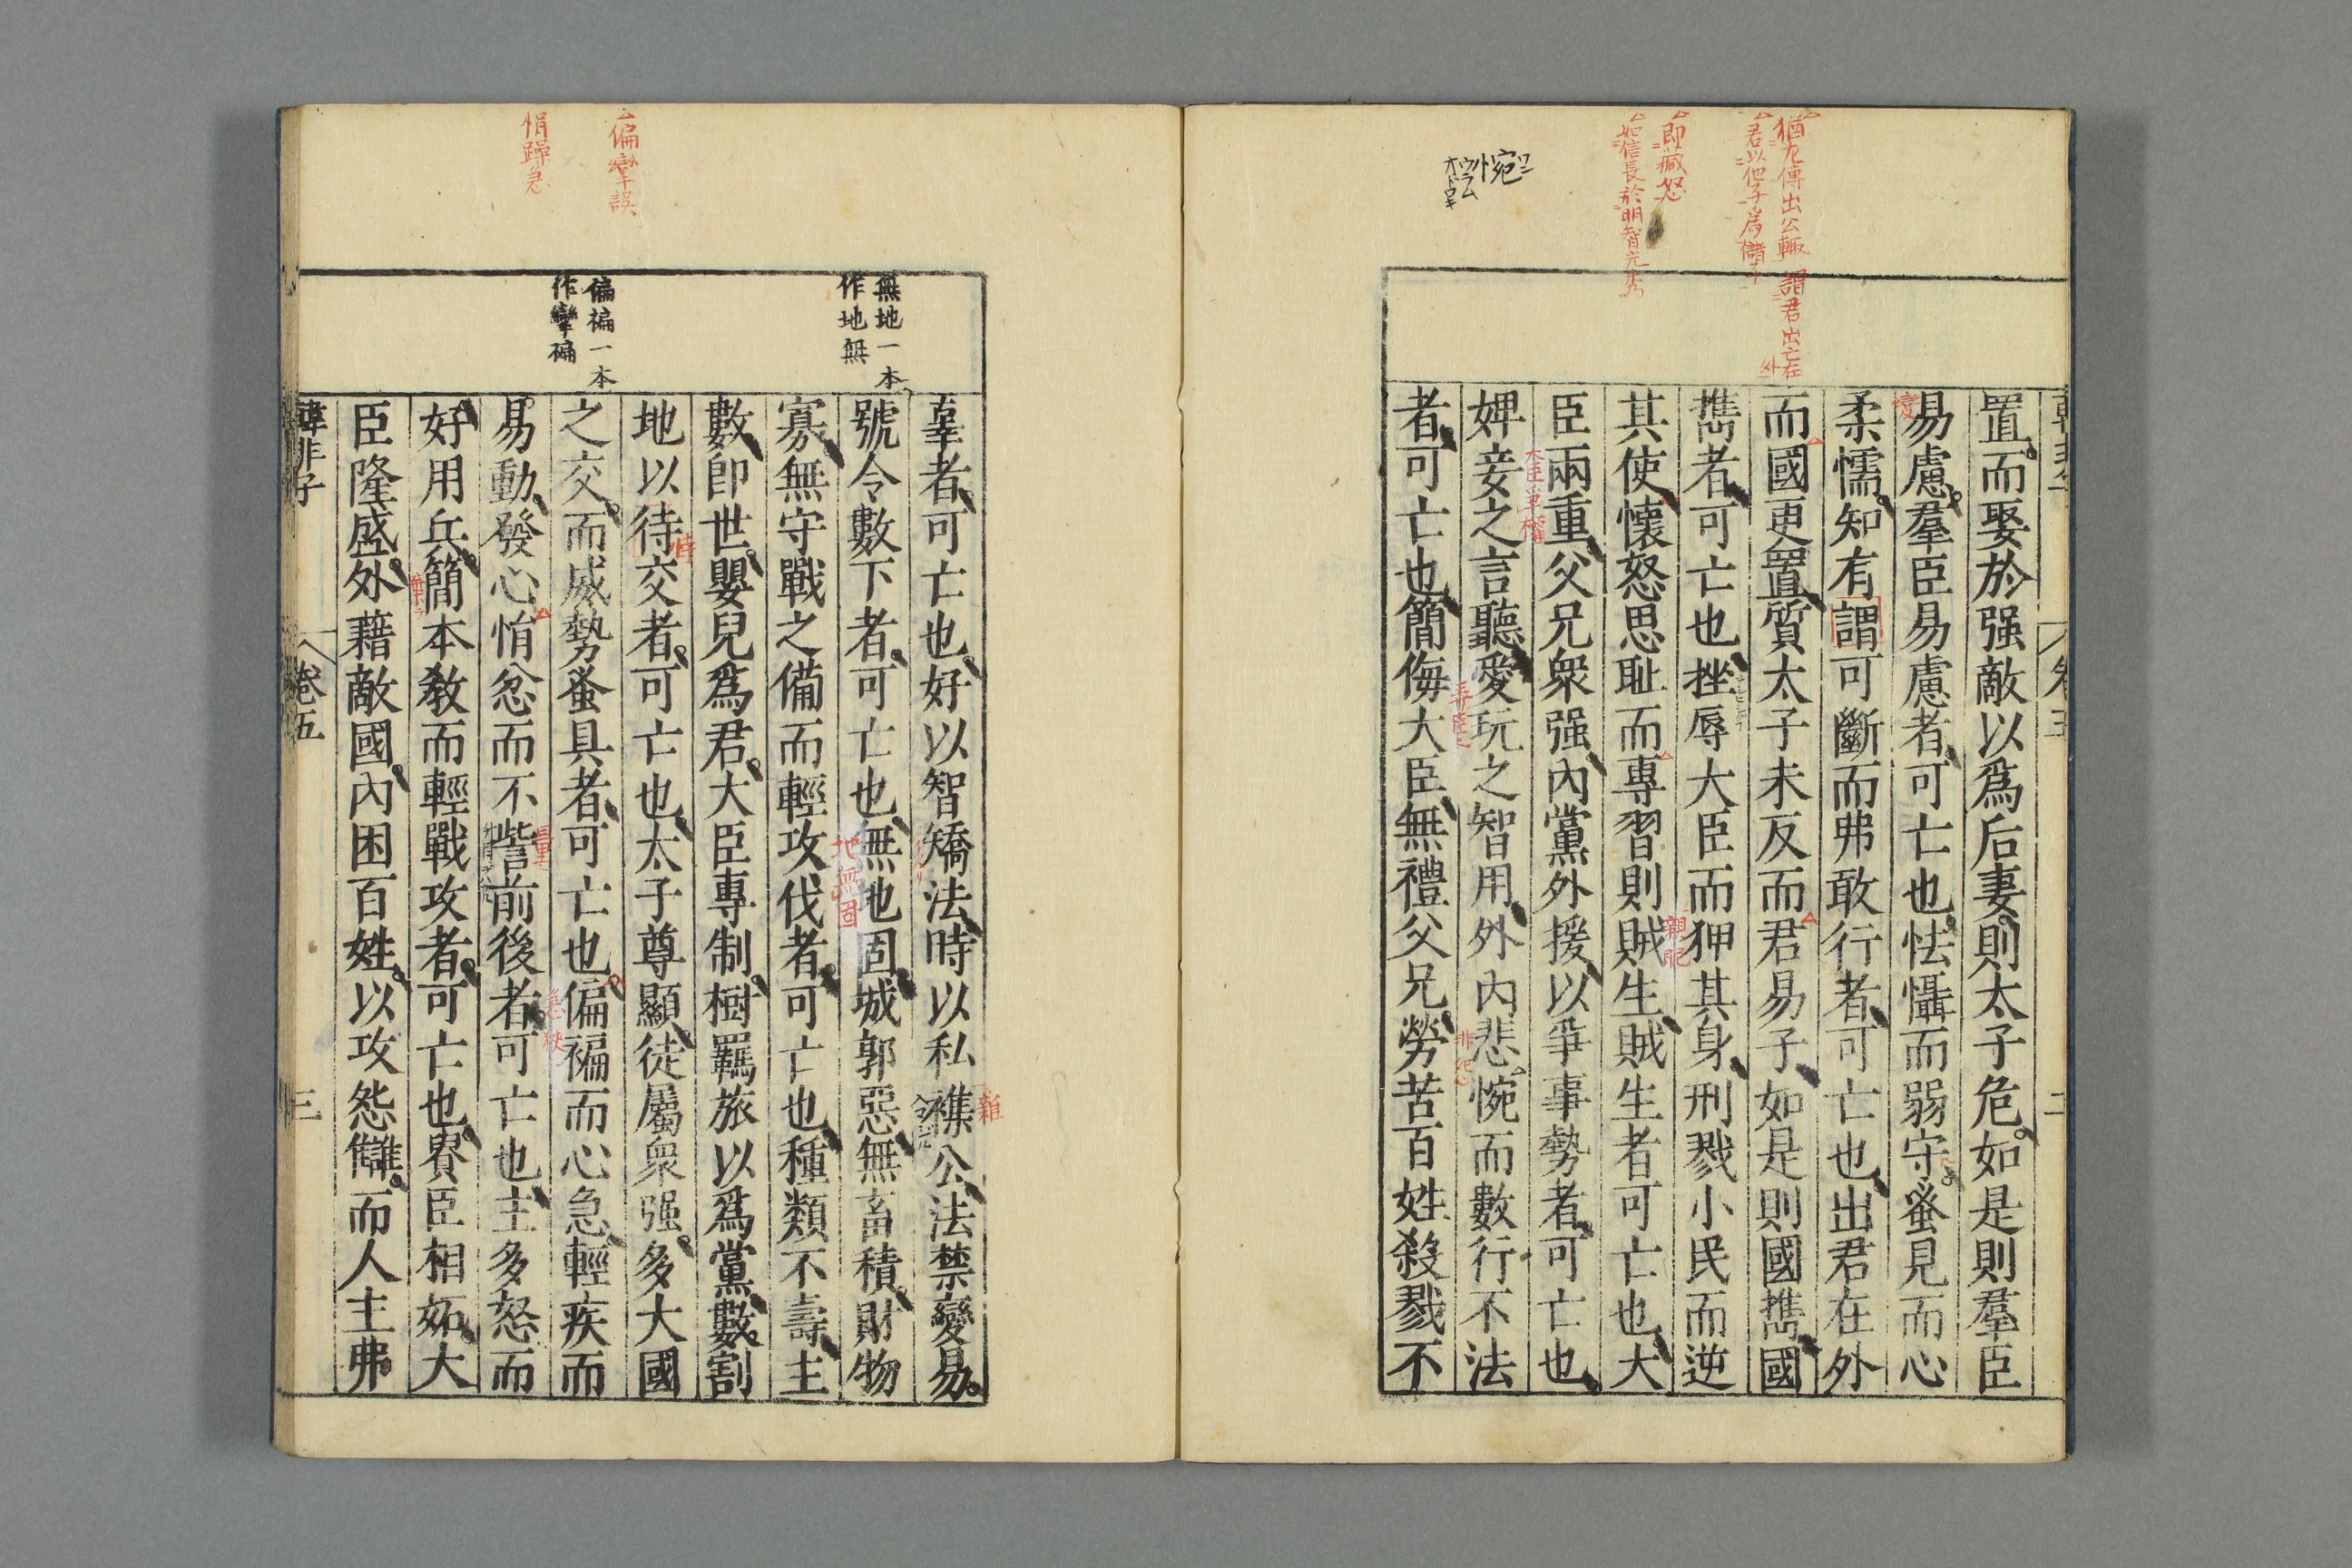 猶左傳出公輒謂君出亡在外
君以他子爲儲子
即藏怒
如信長於明智光秀
置而娶於强敵以爲后妻則太子危如是則羣臣
易慮羣臣易慮者可亡也怯懾而弱守蚤見而心
柔懦知有謂可斷而弗敢行者可亡也出君在外
而國更置質太子未反而君易子如是則國攜國
攜者可亡也挫辱大臣而狎其身刑戮小民而逆
其使懷怒思耻而專習則賊生賊生者可亡也大
臣兩重父兄衆强內黨外援以爭事勢者可亡也
婢妾之言聽愛玩之智用外內悲惋而數行不法
者可亡也簡侮大臣無禮父兄勞苦百姓殺戮不
無地一本
作地無
偏褊一本
作攣褊
偏攣誤
悁躁急
辜者可亡也好以智矯法時以私襍公法禁變易
號令數下者可亡也無地固城郭惡無畜積財物
寡無守戰之備而輕攻伐者可亡也種類不壽主
數卽世嬰兒爲君大臣專制樹羈旅以爲黨數割
地以待交者可亡也太子尊顯徒屬衆强多大國
之交而威勢蚤具者可亡也偏褊而心急輕疾而
易動發心悁忿而不訾前後者可亡也主多怒而
好用兵簡本敎而輕戰攻者可亡也賢臣相妬大
臣隆盛外藉敵國內困百姓以攻怨讎而人主弗
韓非子 卷五 三